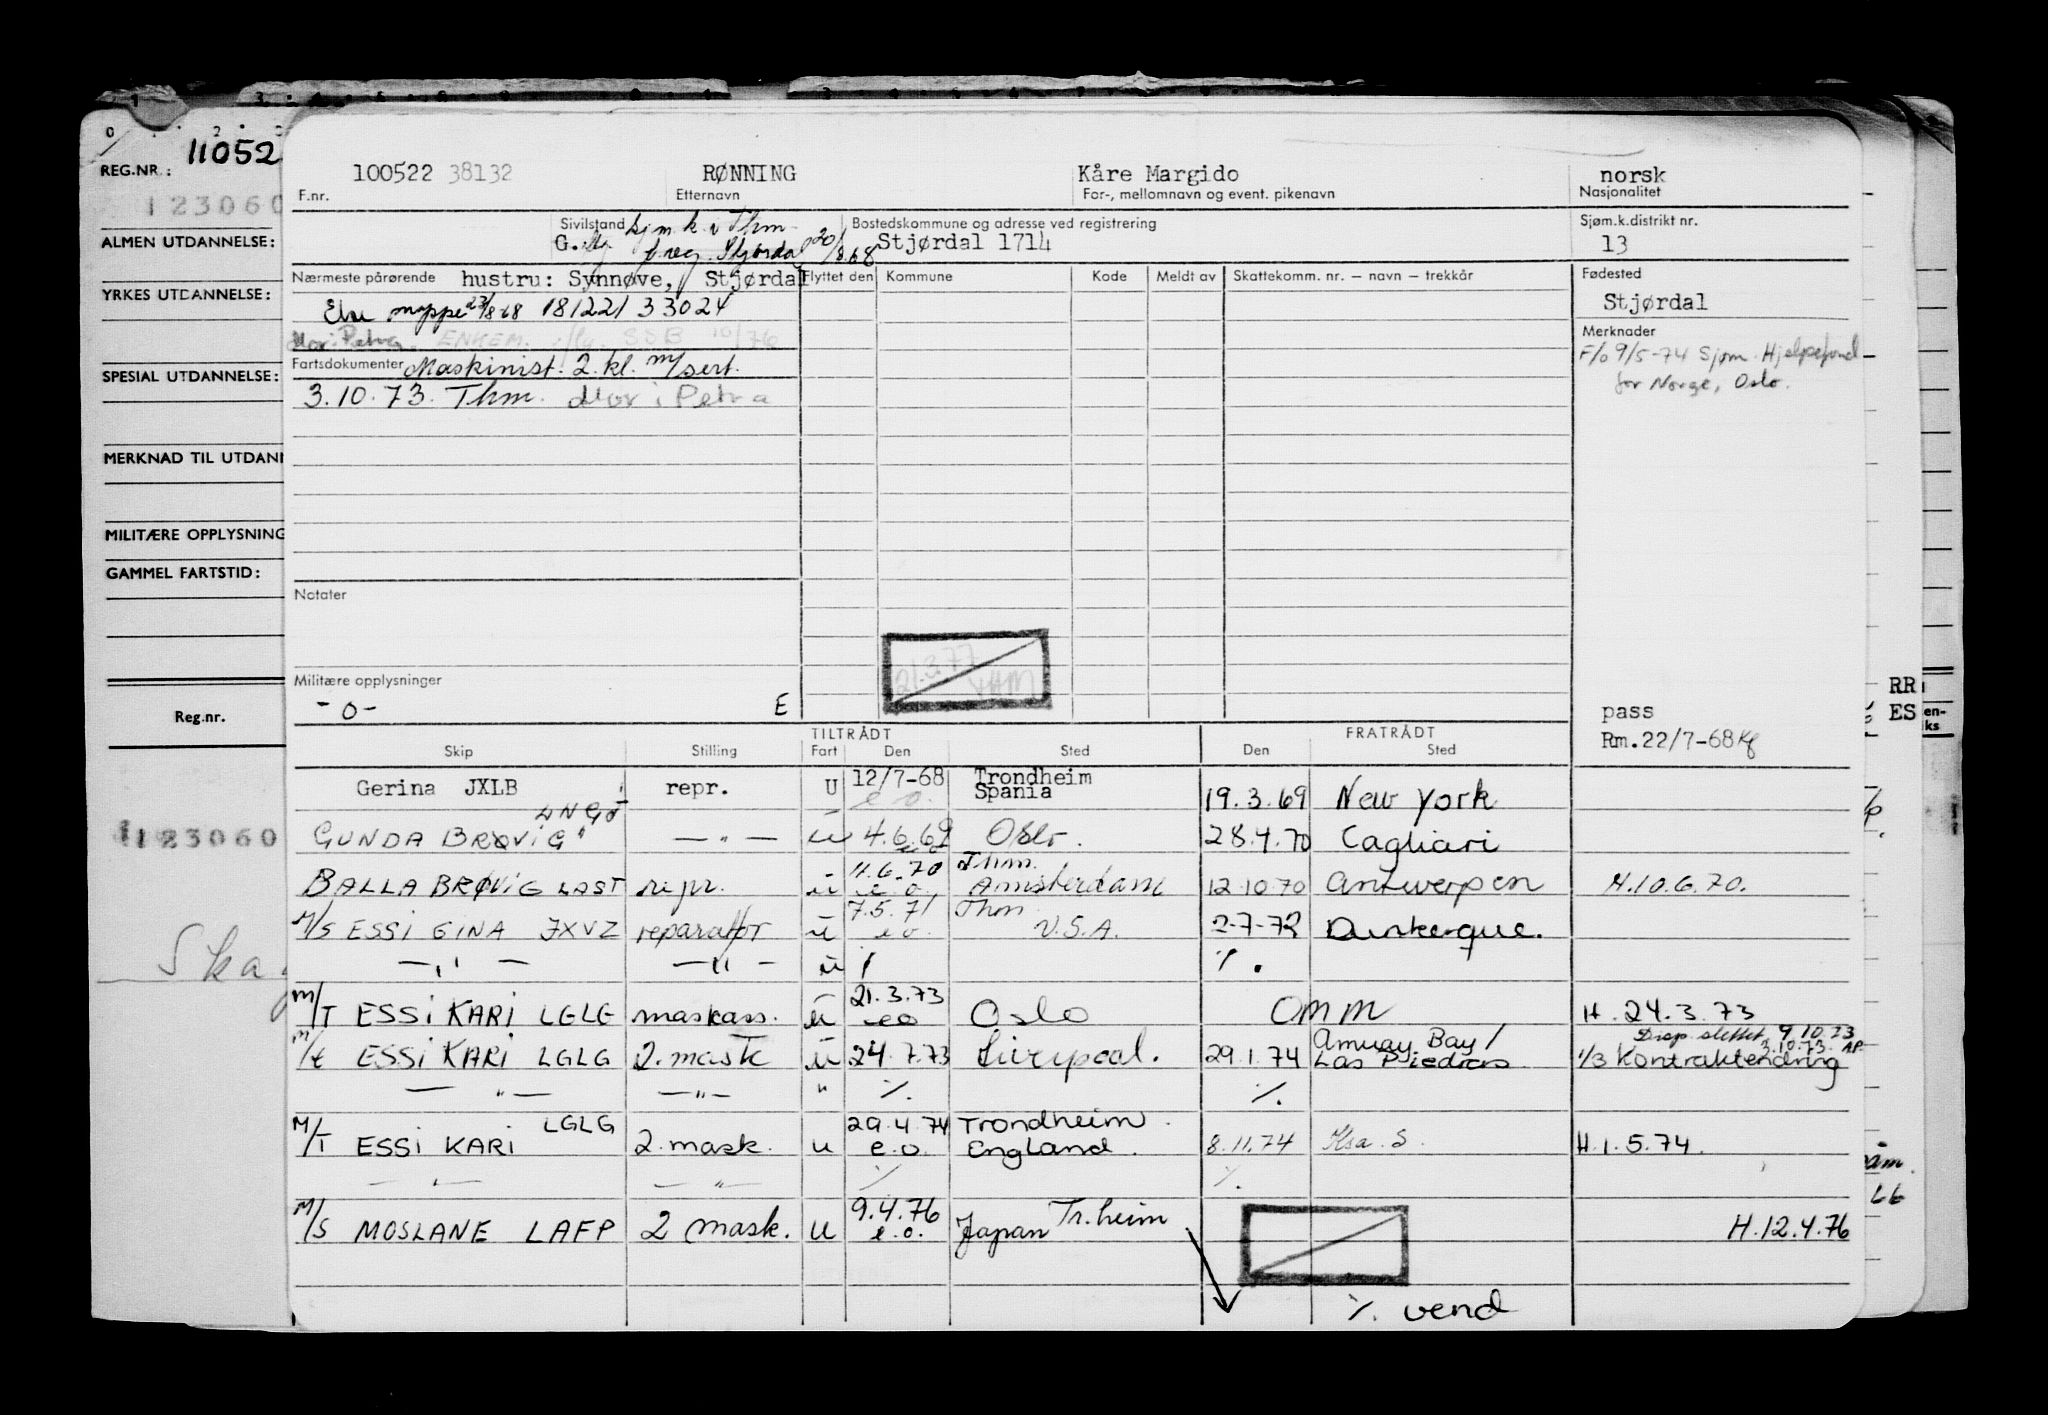 REG.NR.: 11052
123060
ALMEN UTDANNELSE:
YRKES UTDANNELSE:
SPESIAL UTDANNELSE:
MERKNAD TIL UTDANN
MILITÆRE OPPLYSNING
GAMMEL FARTSTID:
Reg.nr.
123060
Ska
100522 38132 RØNNING Kåre Margido norsk
F.nr. Etternavn For-, mellomnavn og event. pikenavn Nasjonalitet
Sivilstand sjm.k. i Thm Bostedskommune og adresse ved registrering Sjøm.k.distrikt nr.
G. f.reg. Stjørdal 20/8.68 Stjørdal 1714 13
Nærmeste pårørende hustru: Synnøve, Stjørdal Flyttet den Kommune Kode Meldt av Skattekomm. nr. – navn – trekkår Fødested
mappe 23/8-68 181221 33024 Stjørdal
Mor: Petra. ENKEM. SSB 10/76 Merknader
F/o 9/5-74 Sjøm. Hjelpefond
for Norge, Oslo.
Fartsdokumenter Maskinist. 2. kl. m/sert.
3.10.73. Thm. Mor: Petra
Notater
21.3.77
THM
Militære opplysninger
- 0 - E
pass
Rm.22/7-68
RR
ES
en-
ks
TILTRÅDT FRATRÅDT
Skip Stilling Fart Den Sted Den Sted
Gerina JXLB repr. U 12/7-68 e.o. Trondheim Spania 19.3.69 New York
GUNDA BRØVIG LNGJ — " — u 4.6.69 Oslo. 28.4.70 Cagliari
BALLA BRØVIG LAST repr. u 11.6.70 e.o. Thm. Amsterdam 12.10.70 Antwerpen H.10.6.70.
M/S ESSI GINA JXVZ reparatør u 7.5.71 e.o. Thm U.S.A. 2-7-72 Dunkerque.
— " — — " — u ٪ ٪.
M/T ESSI KARI LGLG maskass. u 21.3.73 eo Oslo OMM H. 24.3.73
Disp. slettet 9.10.73
3.10.73. AP.
M/t ESSI KARI LGLG 2. mask u 24.7.73 Liverpool. 29.1.74 Amuay Bay/ Las Piedras. 1/3 Kontraktendring
— " — — " — " ٪. ٪.
M/T ESSI KARI LGLG 2. mask. u 29.4.74 e.o. Trondheim. England. 8.11.74 Ksa. S. H.1.5.74.
— " — — " — ٪ ٪.
M/S MOSLANE LAFP 2 mask. u 9.4.76 e.o. Tr.heim Japan H.12.4.76
٪ vend